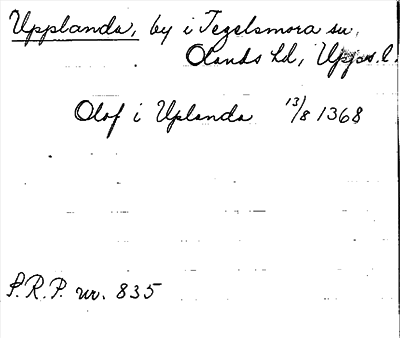 Upplanda, by i Tegelsmora sn,
Olands hd, Upps. l.
Olof i Uplanda 13/8 1368
S.R.P. nr. 835